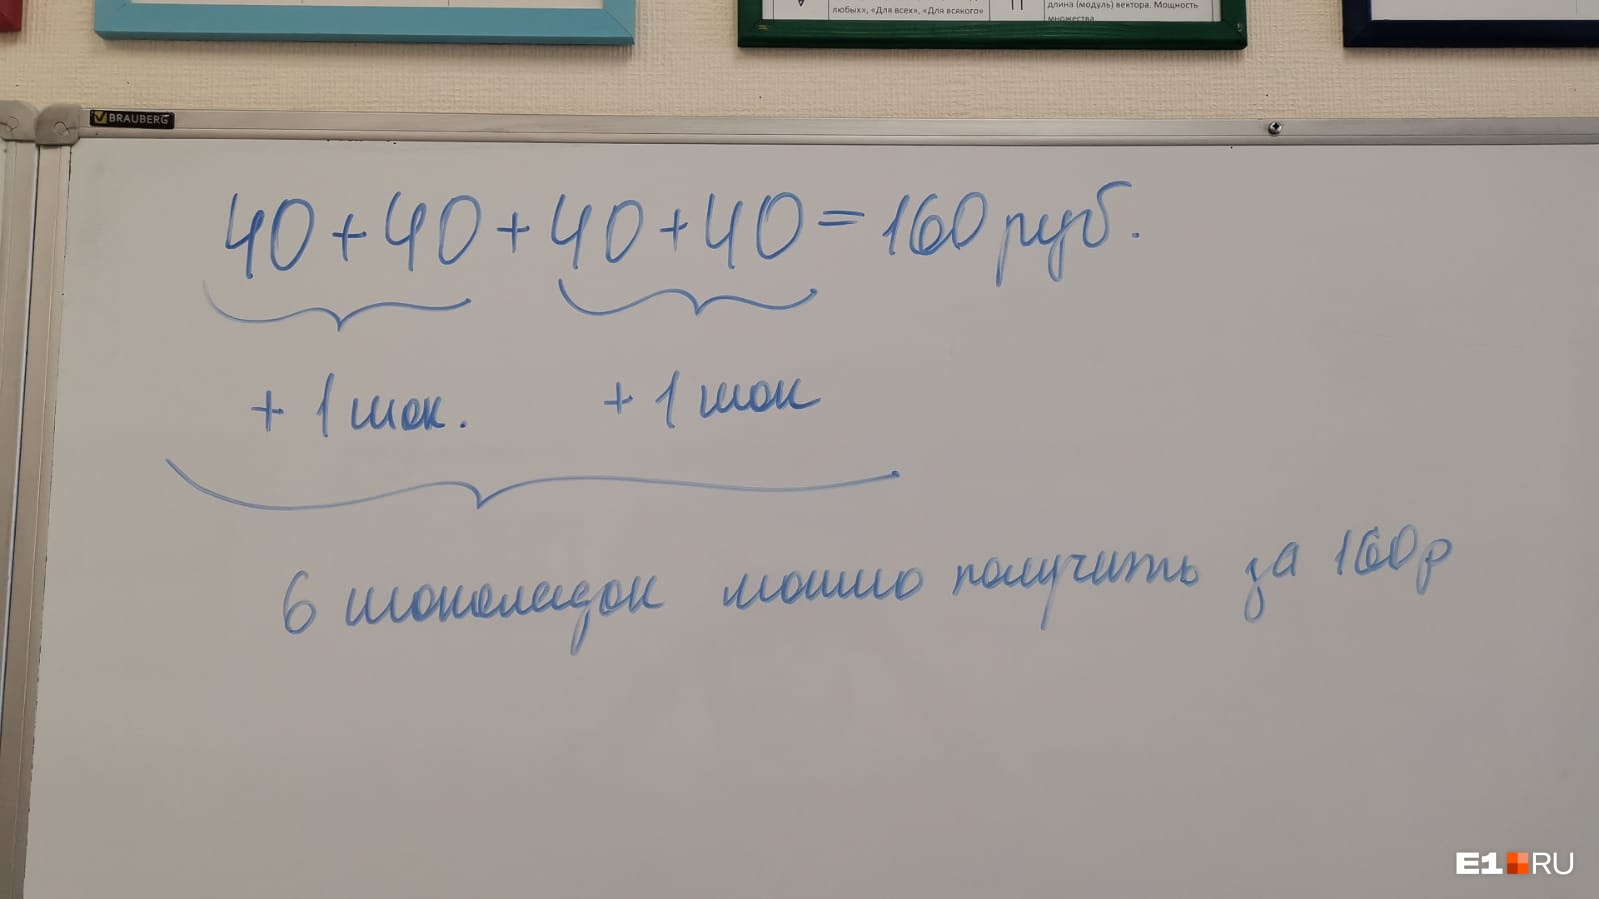 любых», «Для всех», «Для всякого»
длина (модуль) вектора. Мощность
множества
BRAUBERG
40+40+40+40=160 руб.
+ 1 шок. + 1 шок
6 шоколадок можно получить за 160р
E1.RU